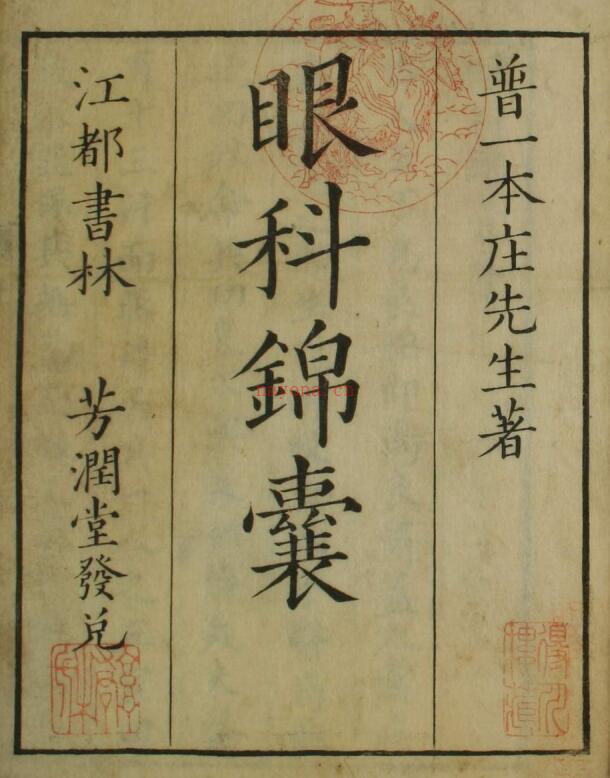 普一本庄先生著
眼科錦囊
江都書林 芳潤堂發兌